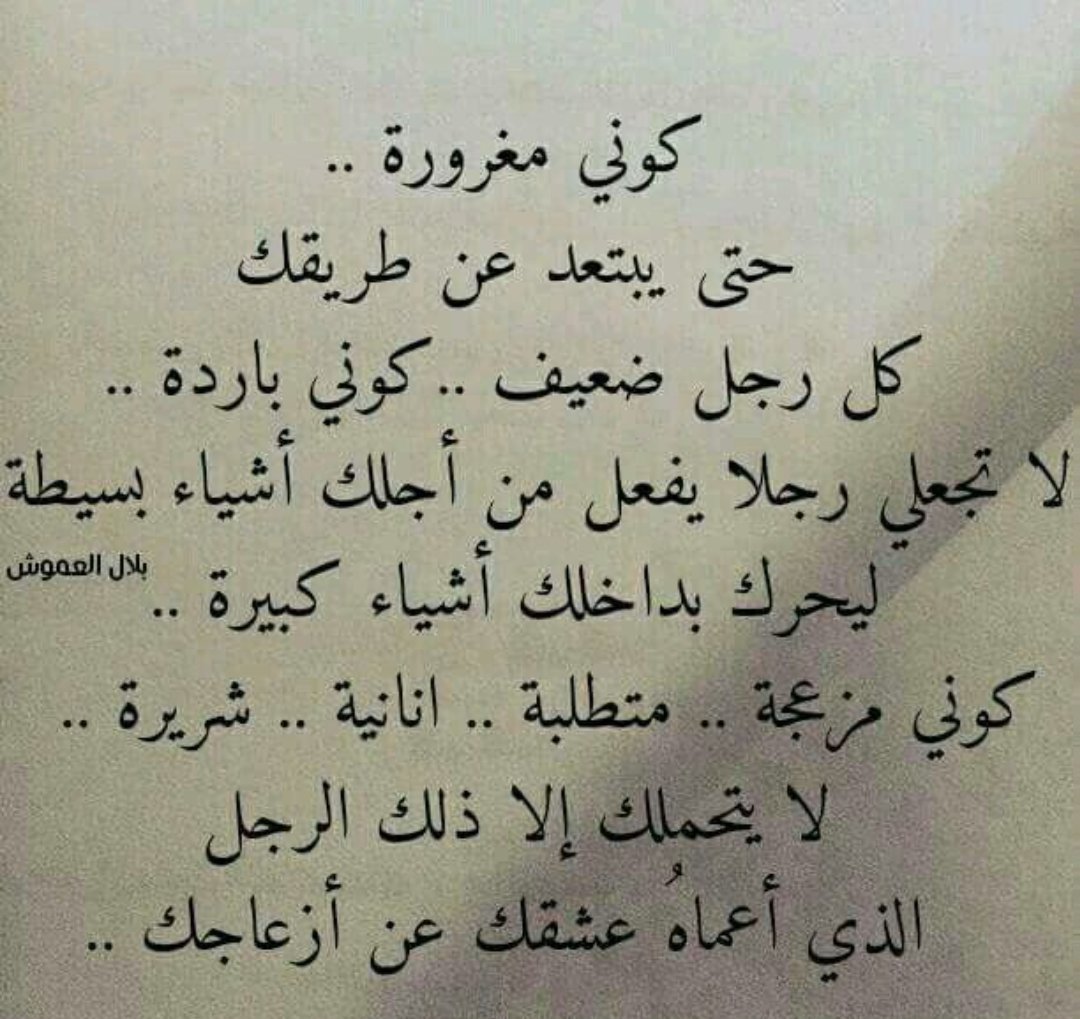 كوني مغرورة ..
حتى يبتعد عن طريقك
كل رجل ضعيف ..كوني باردة ..
لا تجعلي رجلا يفعل من أجلك أشياء بسيطة
ليحرك بداخلك أشياء كبيرة ..
بلال العموش
كوني مزعجة .. متطلبة .. انانية .. شريرة ..
لا يتحملك إلا ذلك الرجل
الذي أعماهُ عشقك عن أزعاجك ..